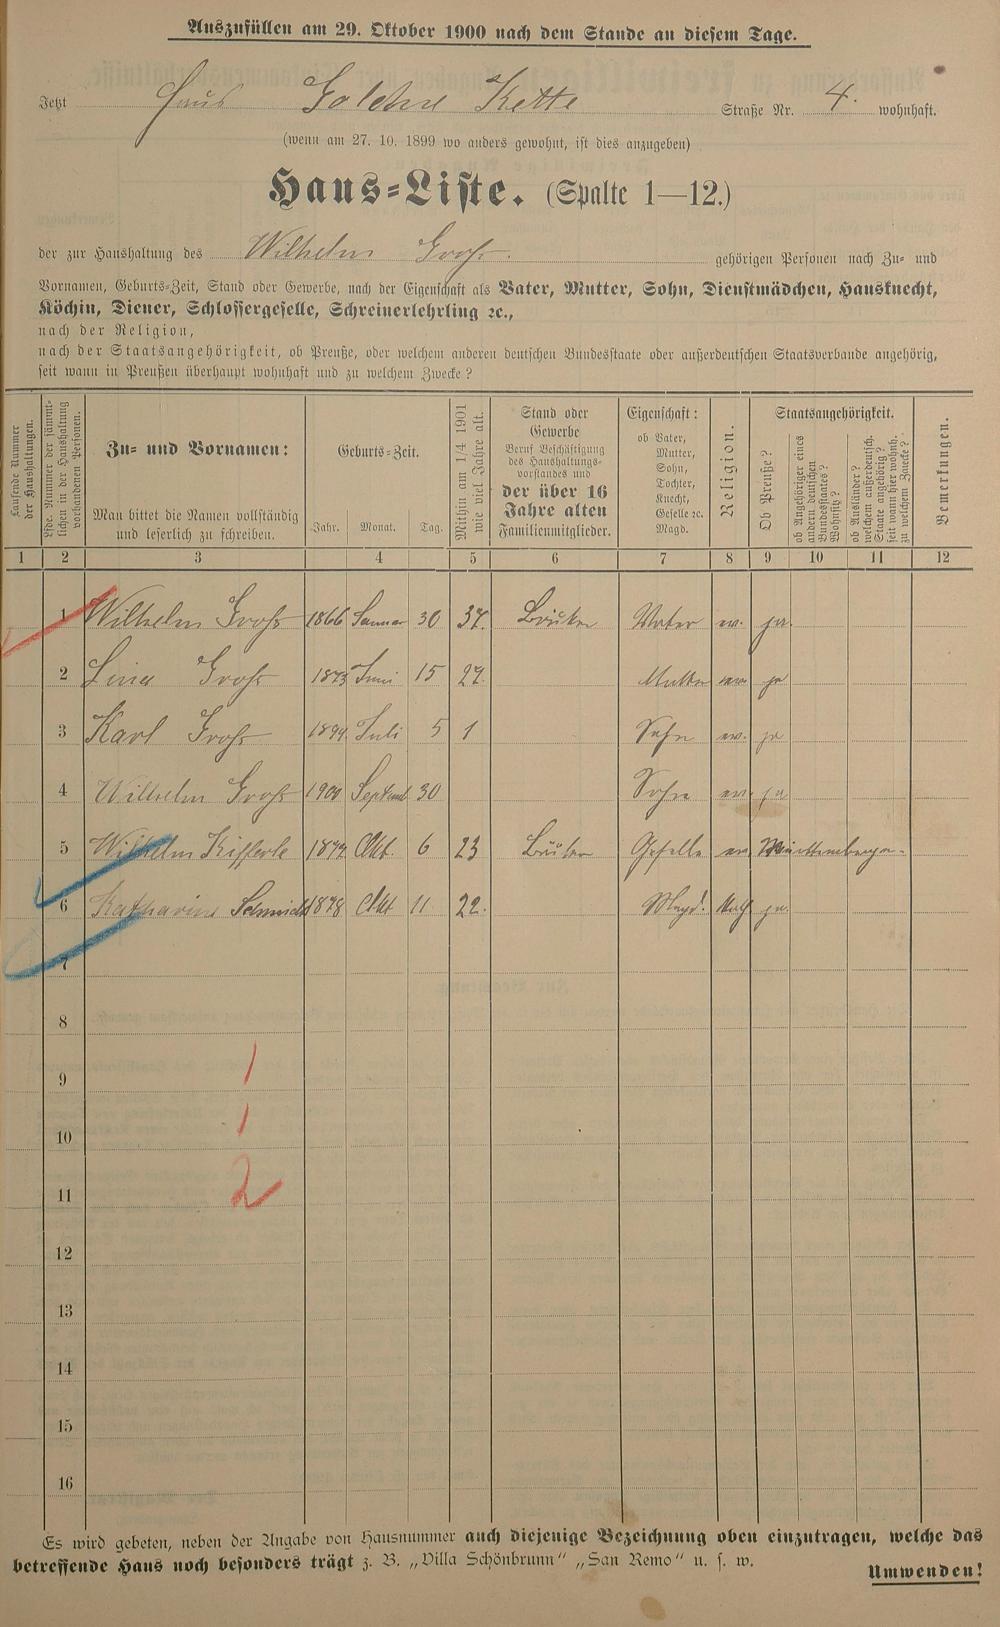 Auszufüllen am 29. Oktober 1900 nach dem Stande an diesem Tage.
Jetzt Haus Goldene Kette Straße Nr. 4. wohnhaft.
(wenn am 27. 10. 1899 wo anders gewohnt, ist dies anzugeben)
Haus-Liste. (Spalte 1—12.)
der zur Haushaltung des Wilhelm Groß. gehörigen Personen nach Zu- und
Vornamen, Geburts-Zeit, Stand oder Gewerbe, nach der Eigenschaft als Vater, Mutter, Sohn, Dienstmädchen, Hausknecht,
Köchin, Diener, Schlossergeselle, Schreinerlehrling ꝛc.,
nach der Religion,
nach der Staatsangehörigkeit, ob Preuße, oder welchem anderen deutschen Bundesstaate oder außerdeutschen Staatsverbande angehörig,
seit wann in Preußen überhaupt wohnhaft und zu welchem Zwecke?
Laufende Nummer der Haushaltungen.
Lfde. Nummer der sämmtlichen in der Haushaltung vorhandenen Personen.
Zu- und Vornamen:
Man bittet die Namen vollständig
und leserlich zu schreiben.
Geburts-Zeit.
Jahr. Monat. Tag.
Mithin am 1/4 1901 wie viel Jahre alt.
Stand oder
Gewerbe
Beruf Beschäftigung
des Haushaltungs-
vorstandes und
der über 16
Jahre alten
Familienmitglieder.
Eigenschaft:
ob Vater,
Mutter,
Sohn,
Tochter,
Knecht,
Geselle ꝛc.
Magd.
Religion.
Staatsangehörigkeit.
Ob Preuße?
ob Angehöriger eines andern deutschen Bundesstaates? Wohnsitz?
ob Ausländer? welchem außerdeutsch. Staate angehörig? seit wann hier wohnh. zu welchem Zwecke?
Bemerkungen.
1 2 3 4 5 6 7 8 9 10 11 12
1 Wilhelm Groß 1866 Januar 30 34. Vater ev. ja.
2 Lina Groß 1873 Juni 15 27. Mutter ev. ja
3 Karl Groß 1899 Juli 5 1 Sohn ev. ja
4 Wilhelm Groß 1900 Septemb 30 Sohn ev. ja
5 Wilhelm Kifferle 1877 Okt. 6 23 Geselle ev. Württemberger.
6 Katharina Schmidt 1878 Okt 11 22. Magd. Kath ja.
7
8
9 1
10 1
11 2
12
13
14
15
16
Es wird gebeten, neben der Angabe von Hausnummer auch diejenige Bezeichnung oben einzutragen, welche das
betreffende Haus noch besonders trägt z. B. „Villa Schönbrunn“ „San Remo“ u. s. w.
Umwenden!